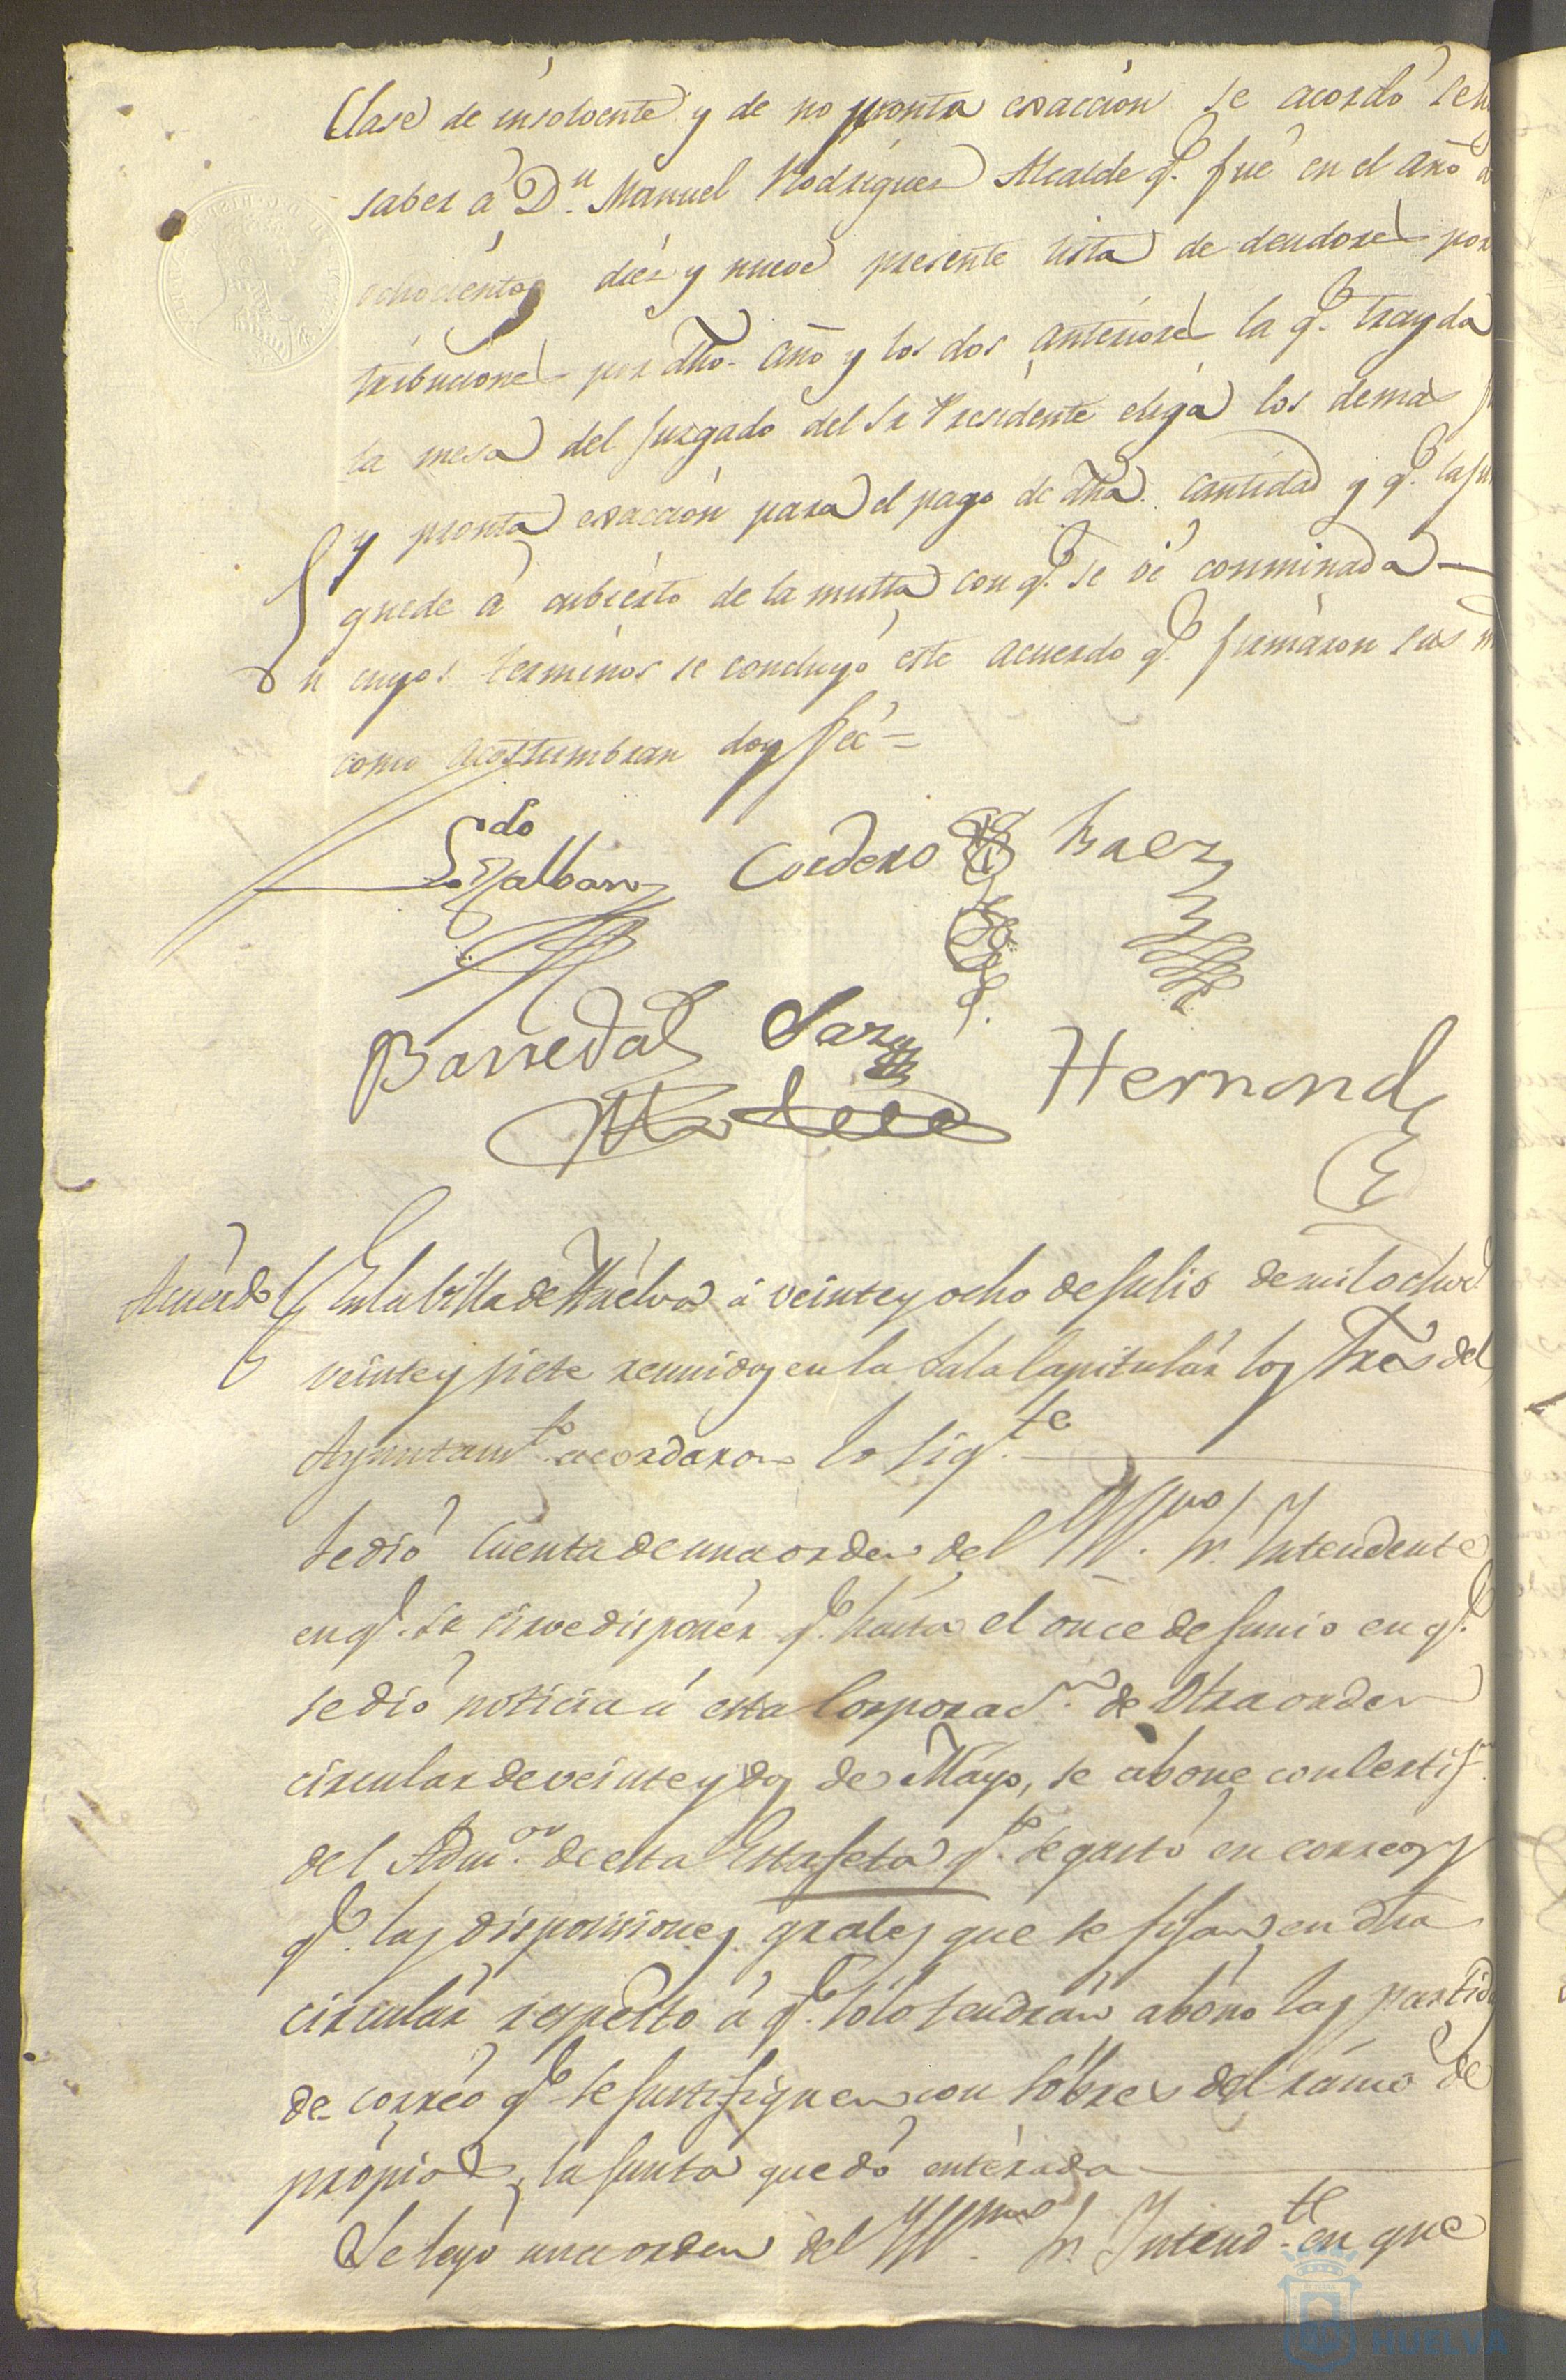 Clase de insolvente y de no pronta exaccion se acordó
saber á Dn. Manuel Rodriguez Alcalde q.e fué en el año
ochocientos diez y nueve presente lista de deudores por
tribuciones por dho. año y los dos anteriores la q.e trayda
la mesa del juzgado del Sr Presidente elija los demas
y pronta exaccion para el pago de dha. cantidad y q.e
quede á cubierto de la multa con q.e se vé conminada
En cuyos terminos se concluyó este acuerdo q.e firmaron sus
como acostumbran doy fee =
Cordero Baez
Barreda Hernand
Acuerdo En la billa de Huelva á veinte y ocho de Julio de mil ochoc
veinte y siete reunidos en la Sala Capitulár los Sres del
Ayuntam.to acordaron lo sig.te
Se dió Cuenta de una orden del Yll.mo Sr. Yntendente
en q.e se sirve disponér q.e hasta el once de Junio en q.e
se dió noticia á esta Corporac.n de Otra orden
circular de veinte y dos de Mayo, se abone con Certif.n
del Adm.or de esta Estafeta q.to se gastó en correos y
q.e las disposiciones grales que se fijan en dha
circulár respecto á q.e sólo tendrán abóno las partid
de corréo q.e se justifiquen con sobres del rámo de
própios, la Junta quedó enterada
Se leyó una orden del Yll.mo Sr. Yntend.te en que
HUELVA